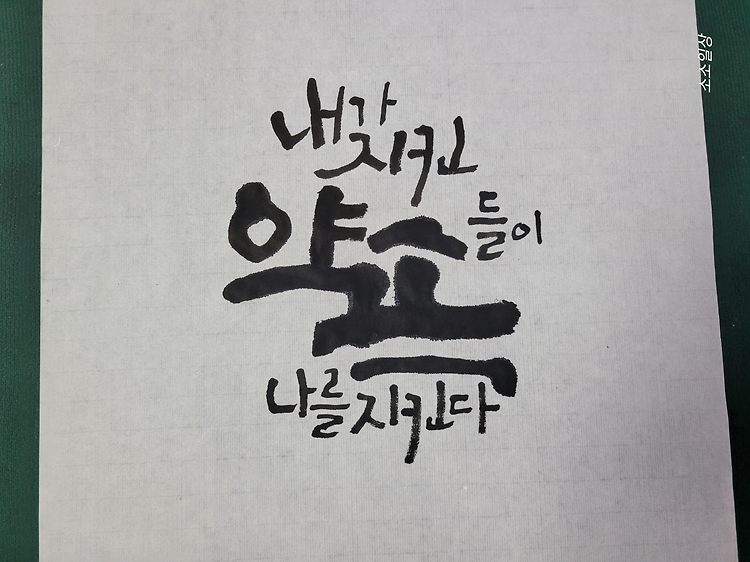 내가 지킨
약속들이
나를 지킨다
소소일상